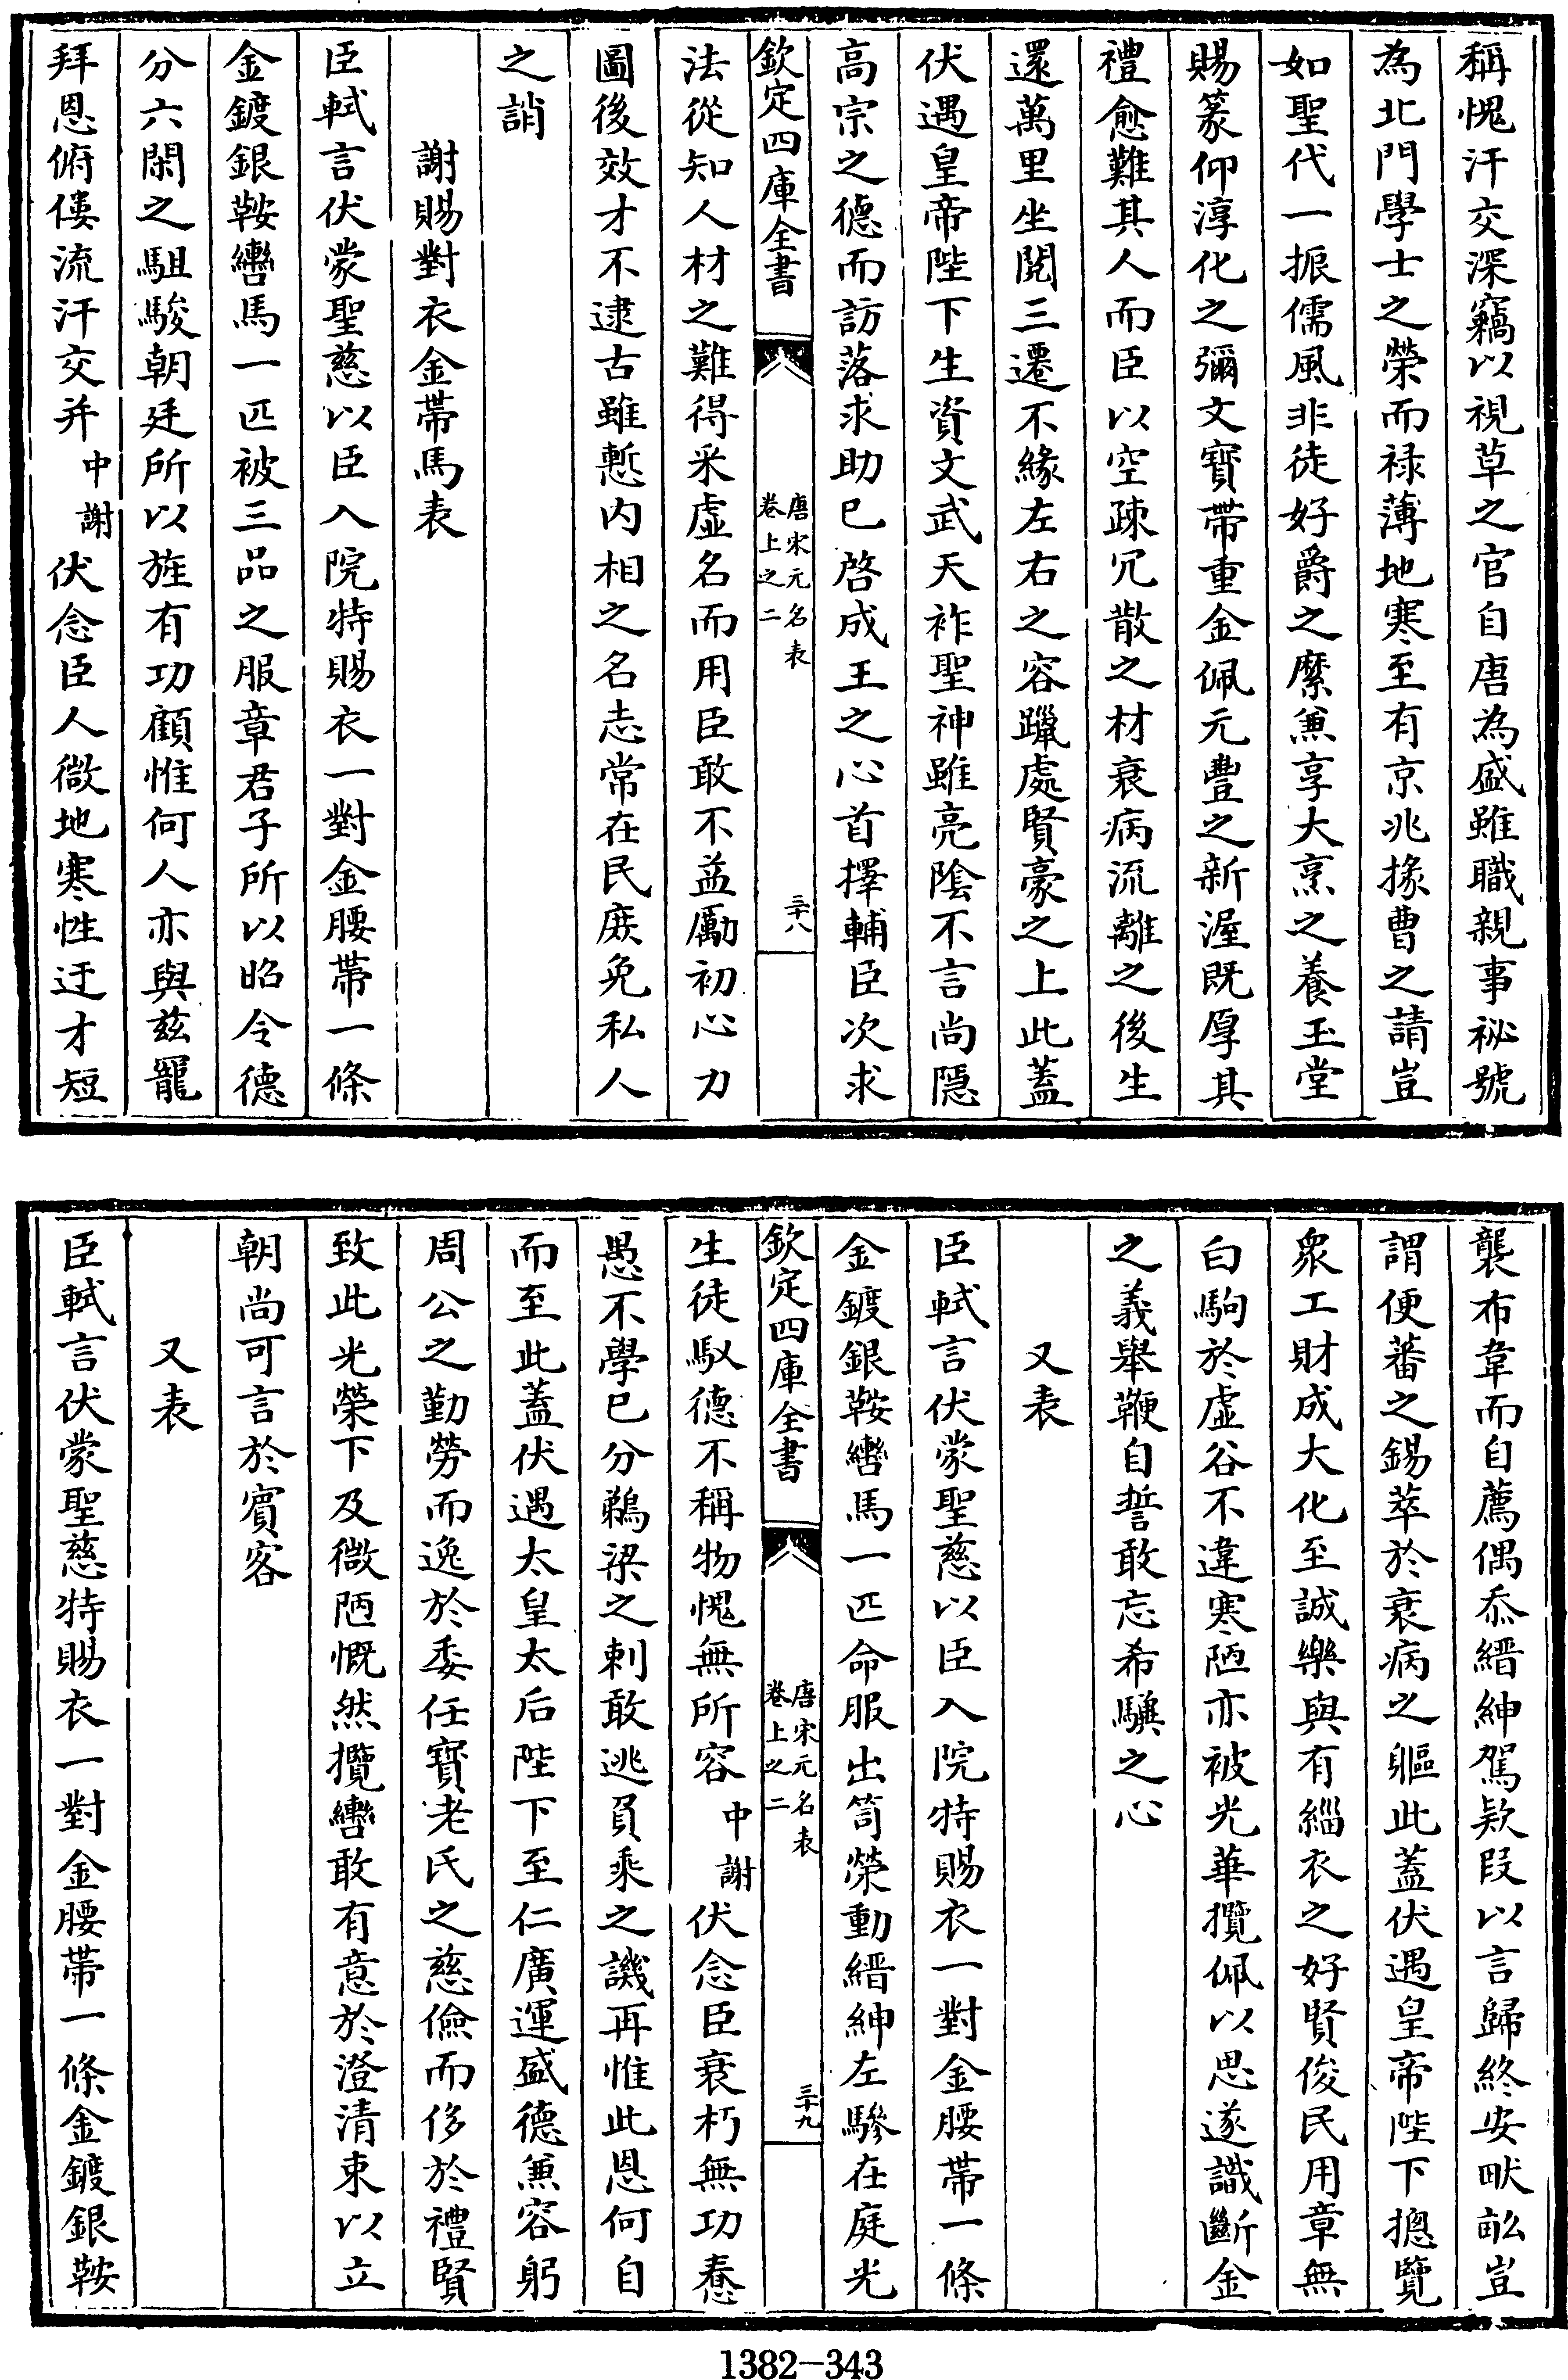 稱愧汗交深竊以視草之官自唐為盛雖職親事祕號
為北門學士之榮而禄薄地寒至有京兆掾曹之請豈
如聖代一振儒風非徒好爵之縻兼享大烹之養玉堂
賜篆仰淳化之彌文寳帶重金佩元豐之新渥既厚其
禮愈難其人而臣以空疎冗散之材衰病流離之後生
還萬里坐閱三遷不緣左右之容躐處賢豪之上此蓋
伏遇皇帝陛下生資文武天祚聖神雖亮陰不言尚隱
高宗之德而訪落求助已啓成王之心首擇輔臣次求
欽定四庫全書
唐宋元名表
卷上之二
三十八
法從知人材之難得采虛名而用臣敢不益勵初心力
圖後效才不逮古雖慙内相之名志常在民庻免私人
之誚
謝賜對衣金帶馬表
臣軾言伏蒙聖慈以臣入院特賜衣一對金腰帶一條
金鍍銀鞍轡馬一匹被三品之服章君子所以昭令德
分六閑之駔駿朝廷所以旌有功顧惟何人亦與兹寵
拜恩俯僂流汗交并中謝伏念臣人微地寒性迂才短
襲布韋而自薦偶忝縉紳駕欵叚以言歸終安畎畆豈
謂便蕃之錫萃於衰病之軀此蓋伏遇皇帝陛下摠覽
衆工財成大化至誠樂與有緇衣之好賢俊民用章無
白駒於虛谷不違寒陋亦被光華攬佩以思遂識斷金
之義舉鞭自誓敢忘希驥之心
又表
臣軾言伏蒙聖慈以臣入院特賜衣一對金腰帶一條
金鍍銀鞍轡馬一匹命服出笥榮動縉紳左驂在庭光
欽定四庫全書
唐宋元名表
卷上之二
三十九
生徒馭德不稱物愧無所容中謝伏念臣衰朽無功惷
愚不學已分鵜梁之刺敢逃負乘之譏再惟此恩何自
而至此蓋伏遇太皇太后陛下至仁廣運盛德兼容躬
周公之勤勞而逸於委任寳老氏之慈儉而侈於禮賢
致此光榮下及微陋慨然攬轡敢有意於澄清束以立
朝尚可言於賓客
又表
臣軾言伏蒙聖慈特賜衣一對金腰帶一條金鍍銀鞍
1382-343